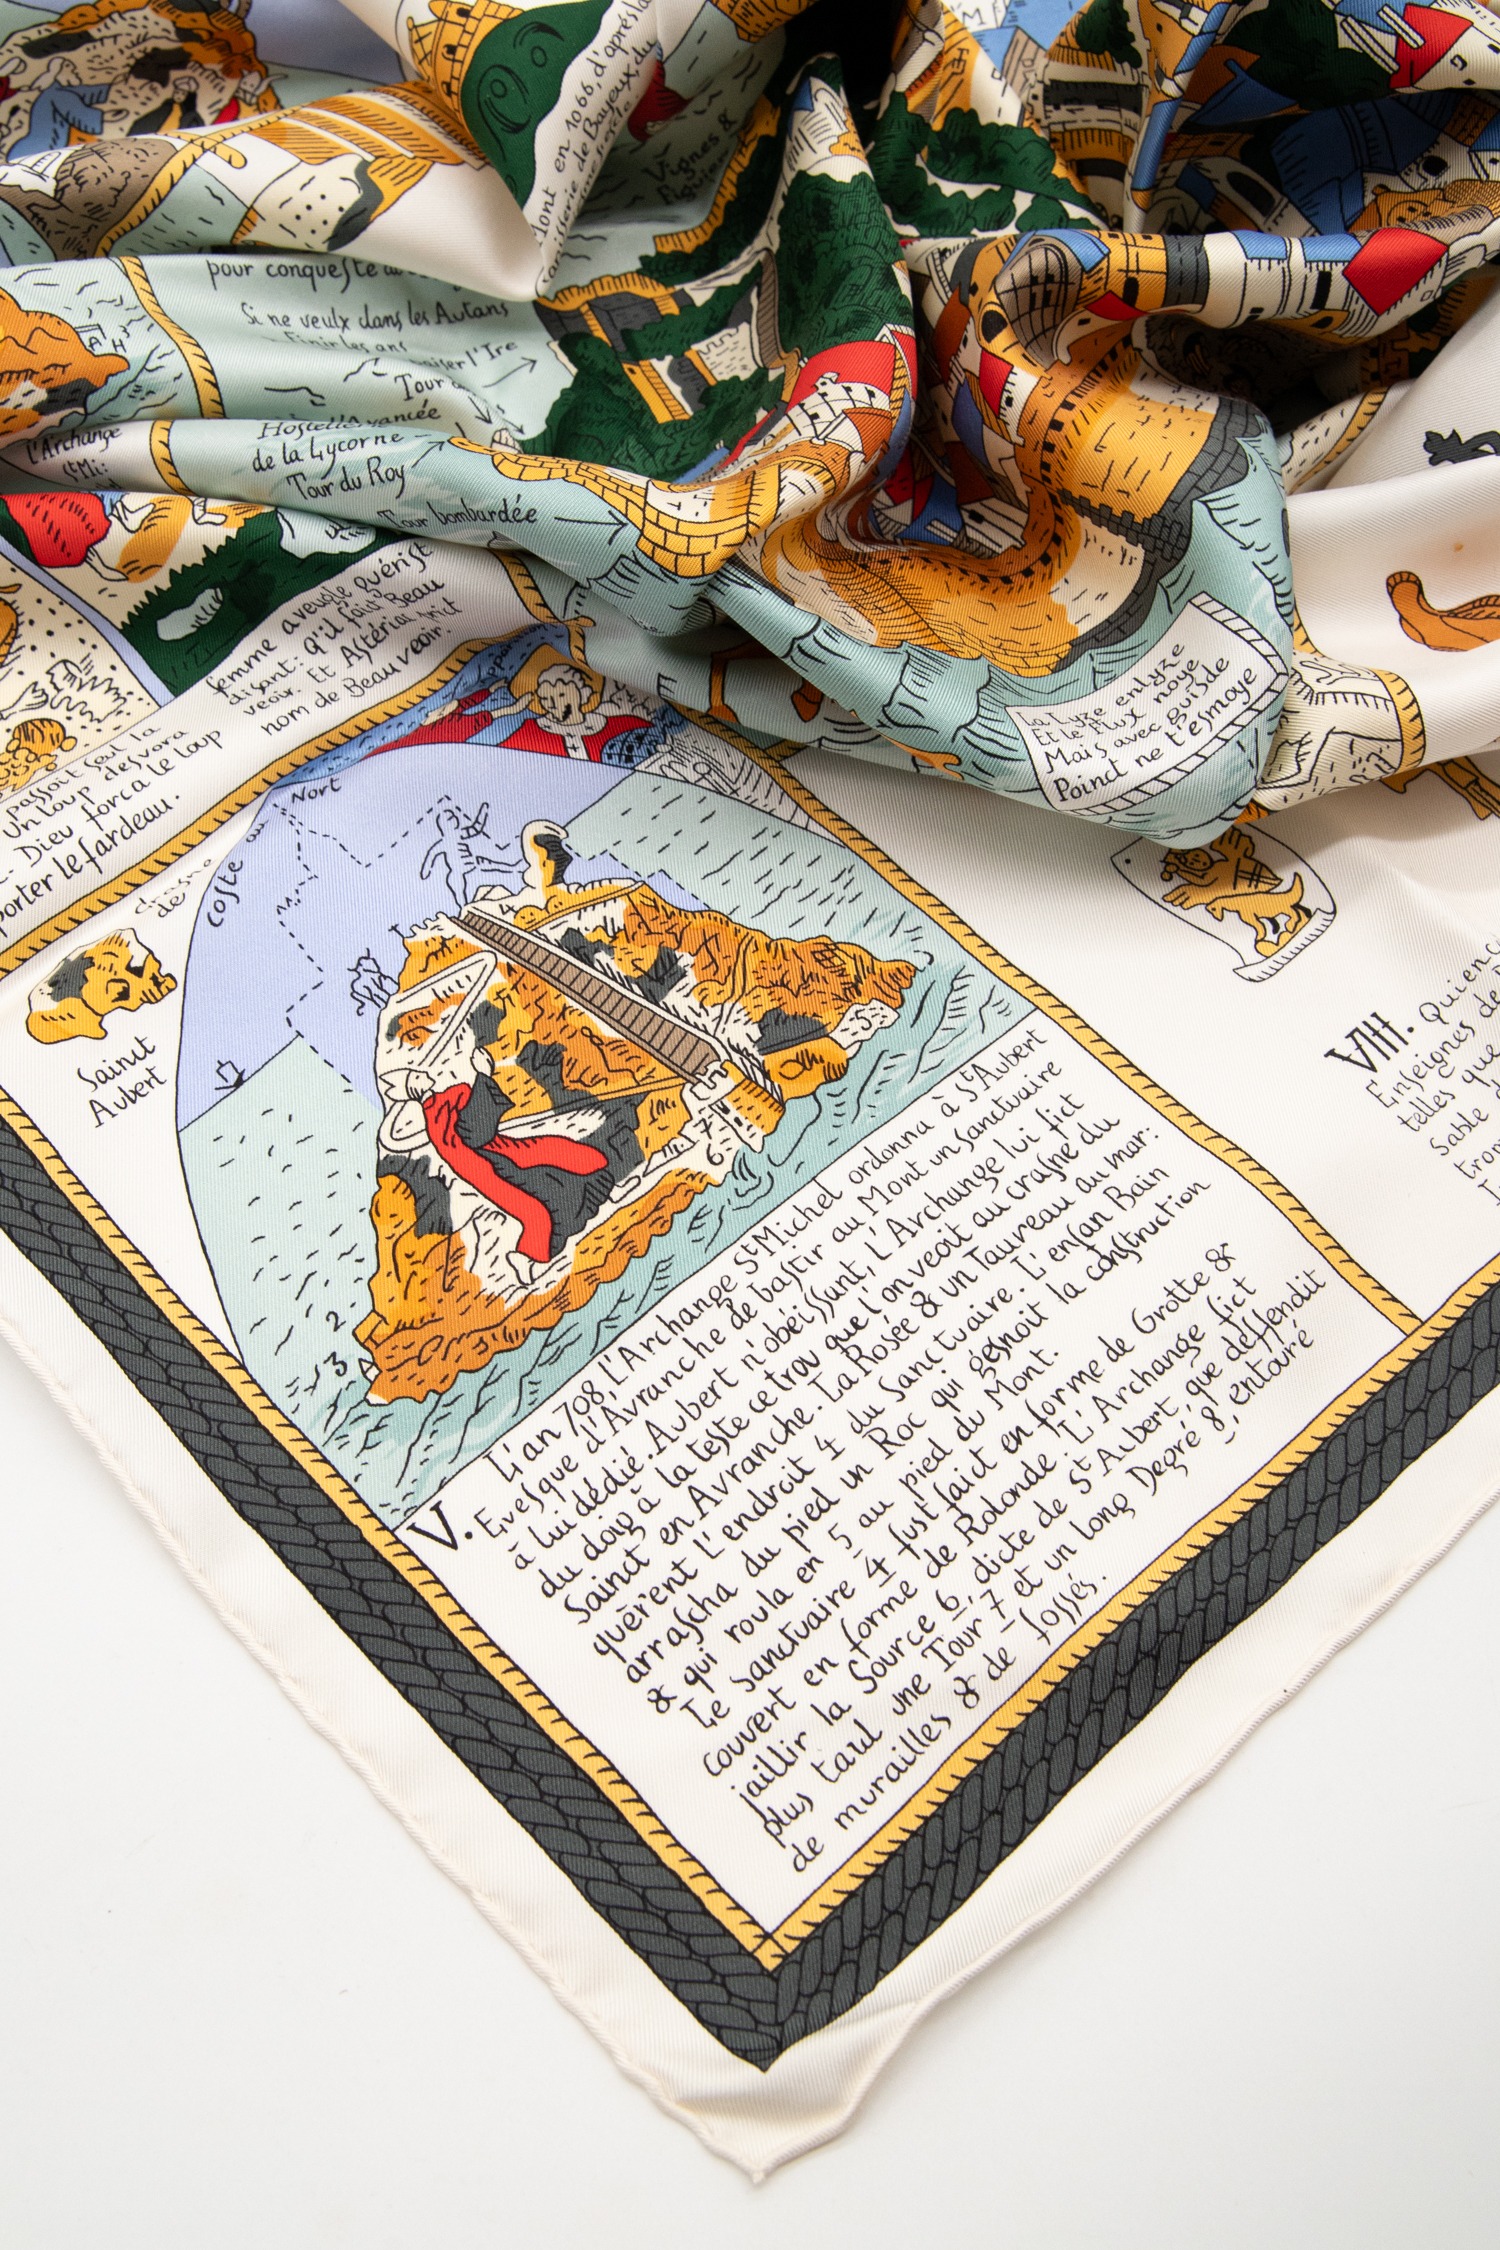 dont en 1066, d'après la
Vignes &
Figuier
pour conqueste
Si ne veulx dans les Autans
Finir les ans
baiser l'Ire
Tour
Hostelle
de la Lycorne
Tour du Roy
Tour bombardée
l'Archange
St Mi:
femme aveugle guérist
disant: q'il faist Beau
veoir. Et Astériac prist
nom de Beauveoir.
passoit seul la
Un loup desvora
Dieu força le loup
porter le fardeau.
La Lyze enlyze
Et le Flux noye
Mais avec guisde
Poinct ne t'esmoye
Nort
Coste au
Sainct
Aubert
4
5
7
6
2
3
VIII. Quienc
Enseignes de
telles que
Sable
trom
V. L'an 708, l'Archange St Michel ordonna à St Aubert
Evesque d'Avranche de bastir au Mont un sanctuaire
à lui dédié. Aubert n'obéissant, l'Archange lui fict
du doig à la teste ce trou que l'on veoit au crasne du
Sainct en Avranche. La Rosée & un Taureau au mar:
quèrent l'endroit 4 du Sanctuaire. L'enfan Bain
arrascha du pied un Roc qui gesnoit la construction
& qui roula en 5 au pied du Mont.
Le Sanctuaire 4 fust faict en forme de Grotte &
couvert en forme de Rotonde. L'Archange fict
jaillir la Source 6, dicte de St Aubert, que deffendit
plus tard une Tour 7 et un long Degré 8, entouré
de murailles & de fossés.